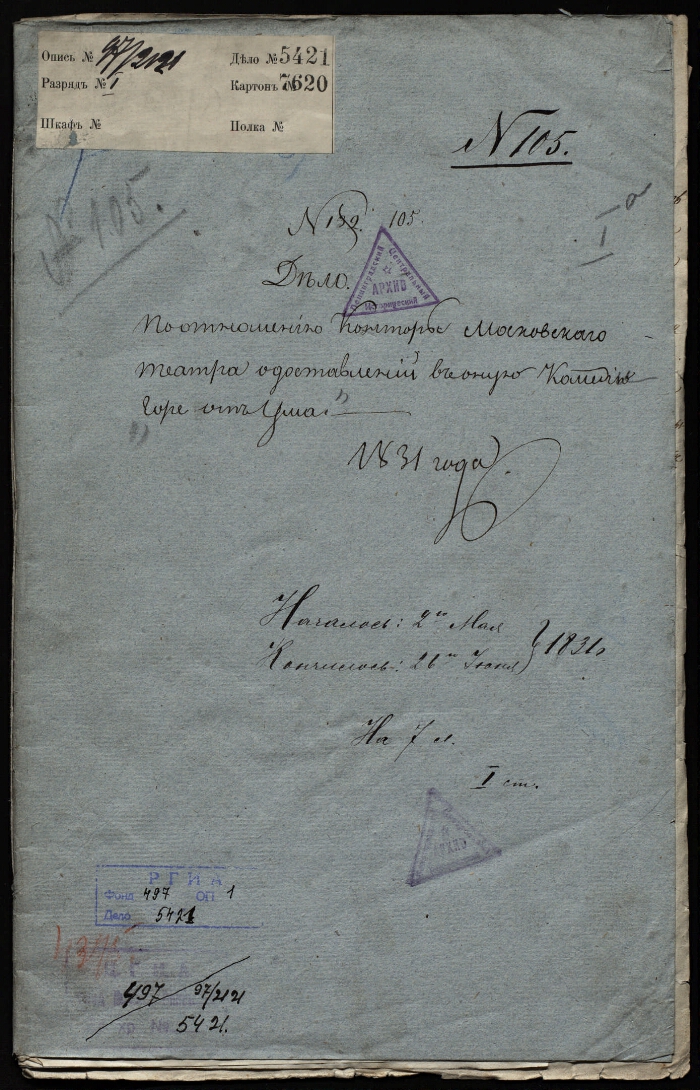 Опись № 97/2121
Дѣло № 5421
Разрядъ № I
Картонъ № 7620
Шкафъ №
Полка №
N 105.
№ 105.
I a
N 132. 105.
Дѣло.
Ленинградский Центральный Исторический АРХИВ
По отношенію Конторы Московскаго
театра о доставленіи въ оную Комедіи
"Горе отъ Ума."
1831 года
Началось: 2го Мая
Кончилось: 26го Іюня } 1831 г.
На 7 л.
I ст.
АРХИВ
РГИА
Фонд 497 ОП 1
Дело 5421
497 97/2121
5421.